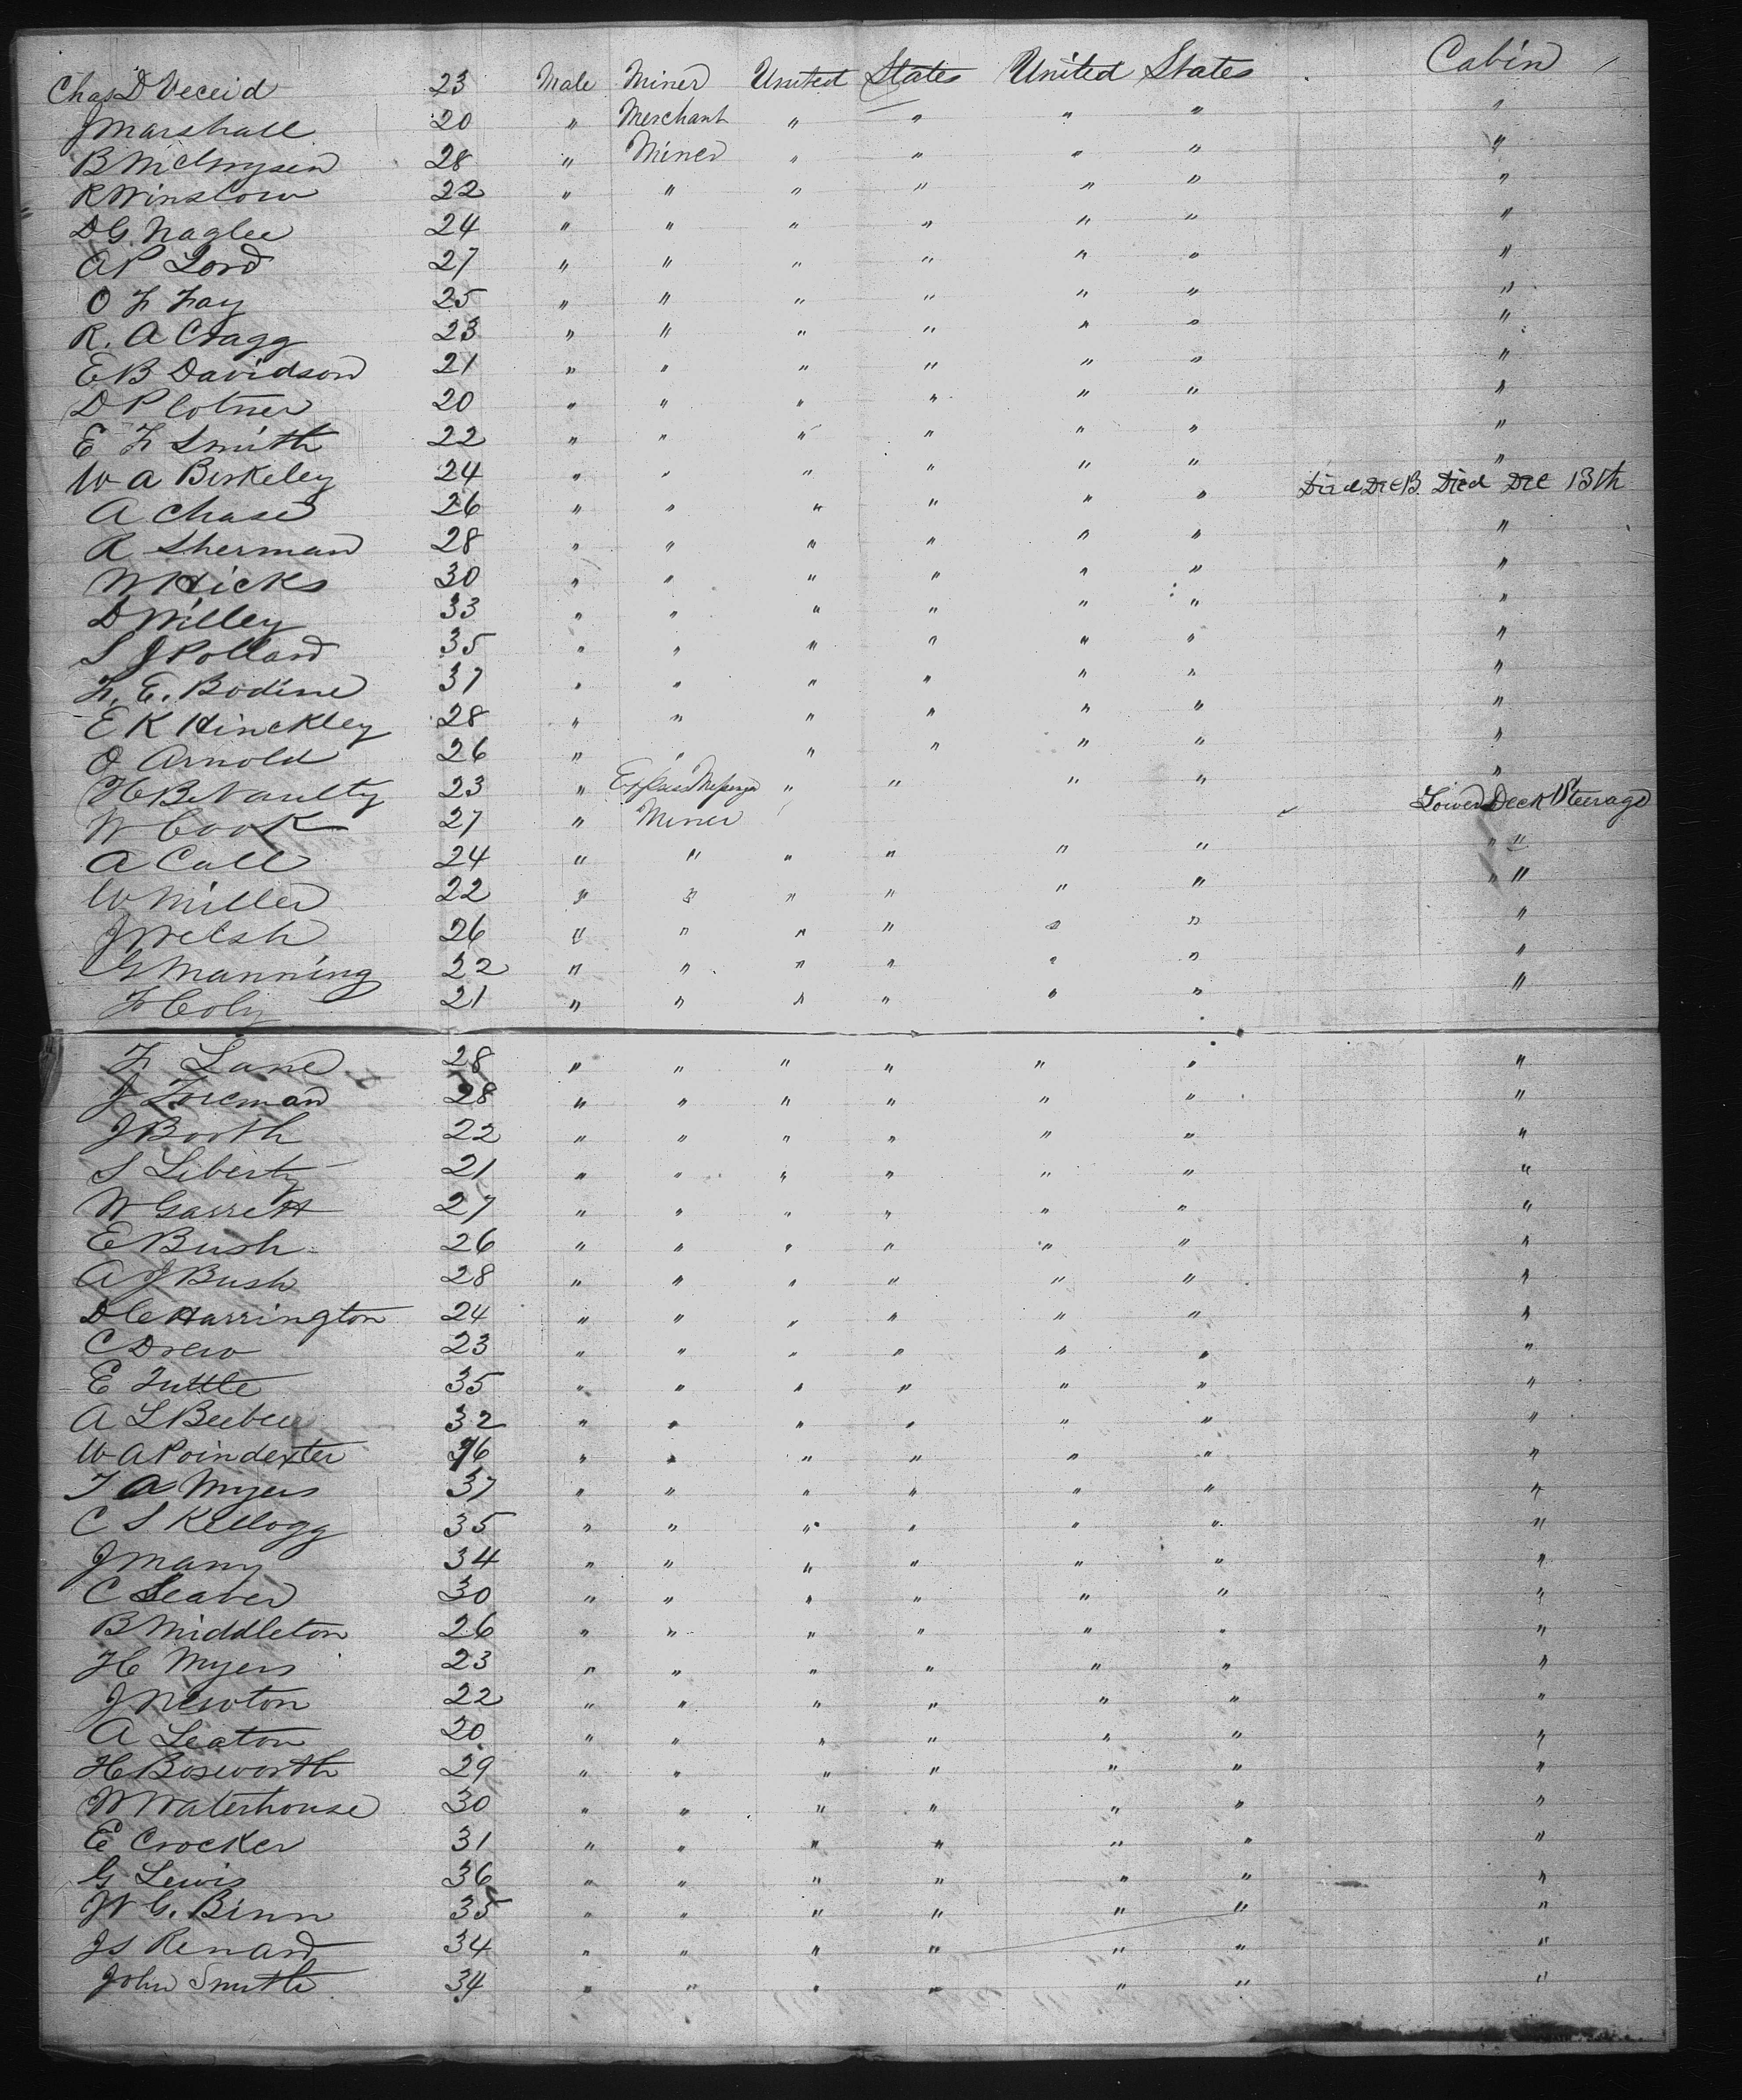 Chas D Veceid 23 Male Miner United States United States Cabin
J Marshall 20 " Merchant " " " " "
B McChrysen 28 " Miner " " " " "
R Winslow 22 " " " " " " "
D G Naglee 24 " " " " " " "
A P Lord 27 " " " " " " "
O F Fay 25 " " " " " " "
R. A Cragg 23 " " " " " " "
E B Davidson 21 " " " " " " "
D P Cotner 20 " " " " " " "
E F Smith 22 " " " " " " "
W A Berkeley 24 " " " " " " "
A Chase 26 " " " " " " Died Dec 13. Died Dec 13th
R Sherman 28 " " " " " " "
W Hicks 30 " " " " " " "
D Willey 33 " " " " " " "
S J Pollard 35 " " " " " " "
F. E. Bodine 37 " " " " " " "
E K Hinckley 28 " " " " " " "
O Arnold 26 " " " " " " "
H B Naulty 23 " Express Messenger " " " " "
W Cook 27 " Miner Lower Deck Steerage
A Call 24 " " " " " " " "
W Miller 22 " " " " " " " "
J Welsh 26 " " " " " " "
G Manning 22 " " " " " " "
F Coly 21 " " " " " " "
F Lane 28 " " " " " " "
J Foreman 28 " " " " " " "
J Booth 22 " " " " " " "
S Liberty 21 " " " " " " "
W Garrett 27 " " " " " " "
E Bush 26 " " " " " " "
A J Bush 28 " " " " " " "
D C Harrington 24 " " " " " " "
C Drew 23 " " " " " " "
E Tuttle 35 " " " " " " "
A L Beebee 32 " " " " " " "
W A Poindexter 36 " " " " " " "
T A Myers 37 " " " " " " "
C S Kellogg 35 " " " " " " "
J Many 34 " " " " " " "
C Seaver 30 " " " " " " "
B Middleton 26 " " " " " " "
H Myers 23 " " " " " " "
J Newton 22 " " " " " " "
A Seaton 20 " " " " " " "
H Bosworth 29 " " " " " " "
W Waterhouse 30 " " " " " " "
E Crocker 31 " " " " " " "
G Lewis 36 " " " " " " "
W G. Binn 35 " " " " " " "
J S Renard 34 " " " " " " "
John Smith 34 " " " " " " "